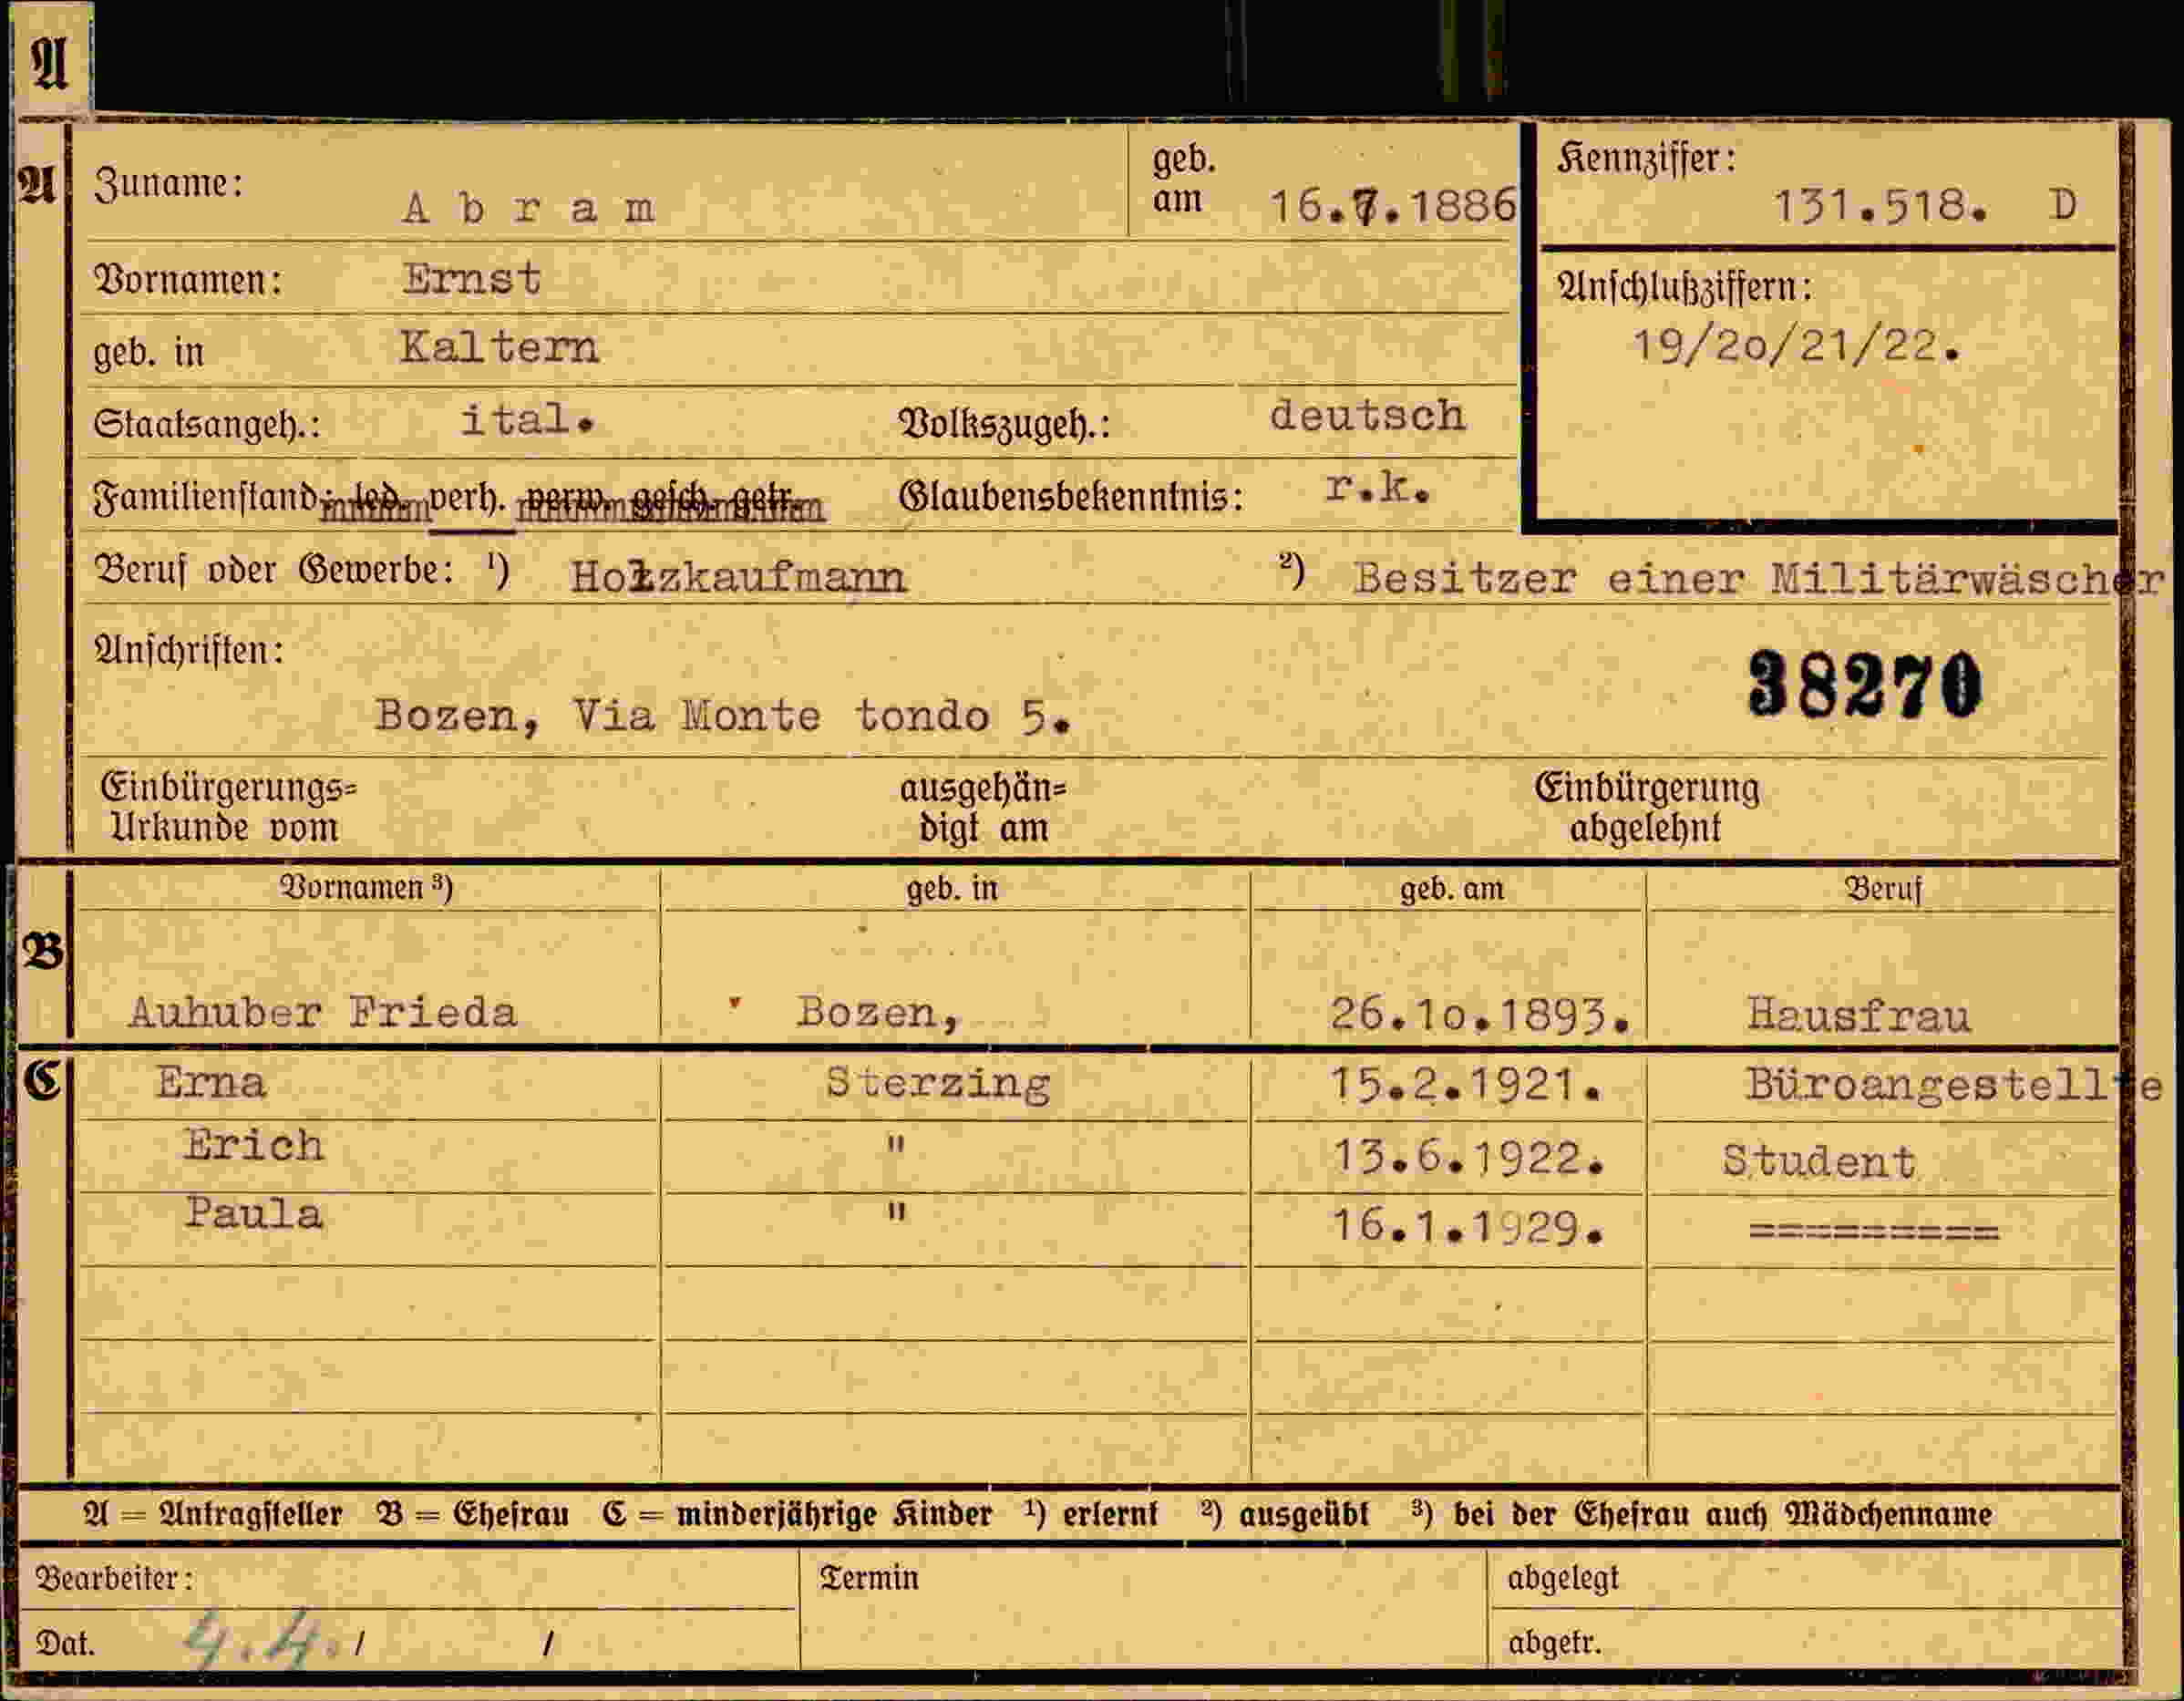 A
A Zuname: Abram geb. am 16.7.1886 Kennziffer: 131.518. D
Vornamen: Ernst
geb. in Kaltern Anschlußziffern: 19/20/21/22.
Staatsangeh.: ital. Volkszugeh.: deutsch
Familienstand: led. verh. verw. gesch. getr. Glaubensbekenntnis: r.k.
Beruf oder Gewerbe: ¹) Holzkaufmann ²) Besitzer einer Militärwäscher
Anschriften: 38270
Bozen, Via Monte tondo 5.
Einbürgerungs= ausgehän= Einbürgerung
Urkunde vom digt am abgelehnt
Vornamen ³) geb. in geb. am Beruf
B
Auhuber Frieda Bozen, 26.10.1893. Hausfrau
C Erna Sterzing 15.2.1921. Büroangestellte
Erich " 13.6.1922. Student
Paula " 16.1.1929. =========
A = Antragsteller B = Ehefrau C = minderjährige Kinder ¹) erlernt ²) ausgeübt ³) bei der Ehefrau auch Mädchenname
Bearbeiter: Termin abgelegt
Dat. 4.4. / / abgetr.